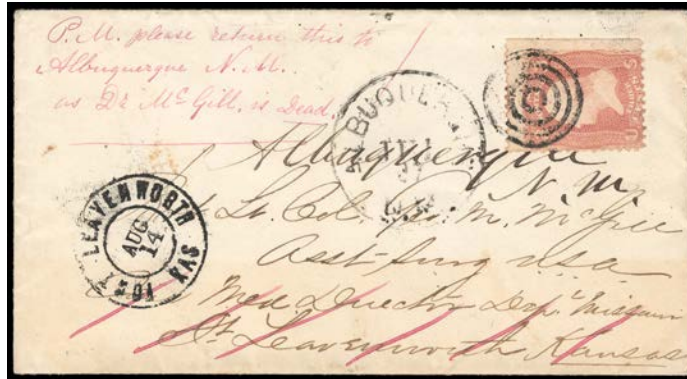 P.M. please return this to
Albuquerque N.M.
as Dr McGill is Dead.
ALBUQUE
Albuquerque
N. M.
LEAVENWORTH KAS
AUG
14
Bt Lt. Col. M. McGill
Asst Surg USA
Med Director Dep. Missouri
Ft Leavenworth Kansas